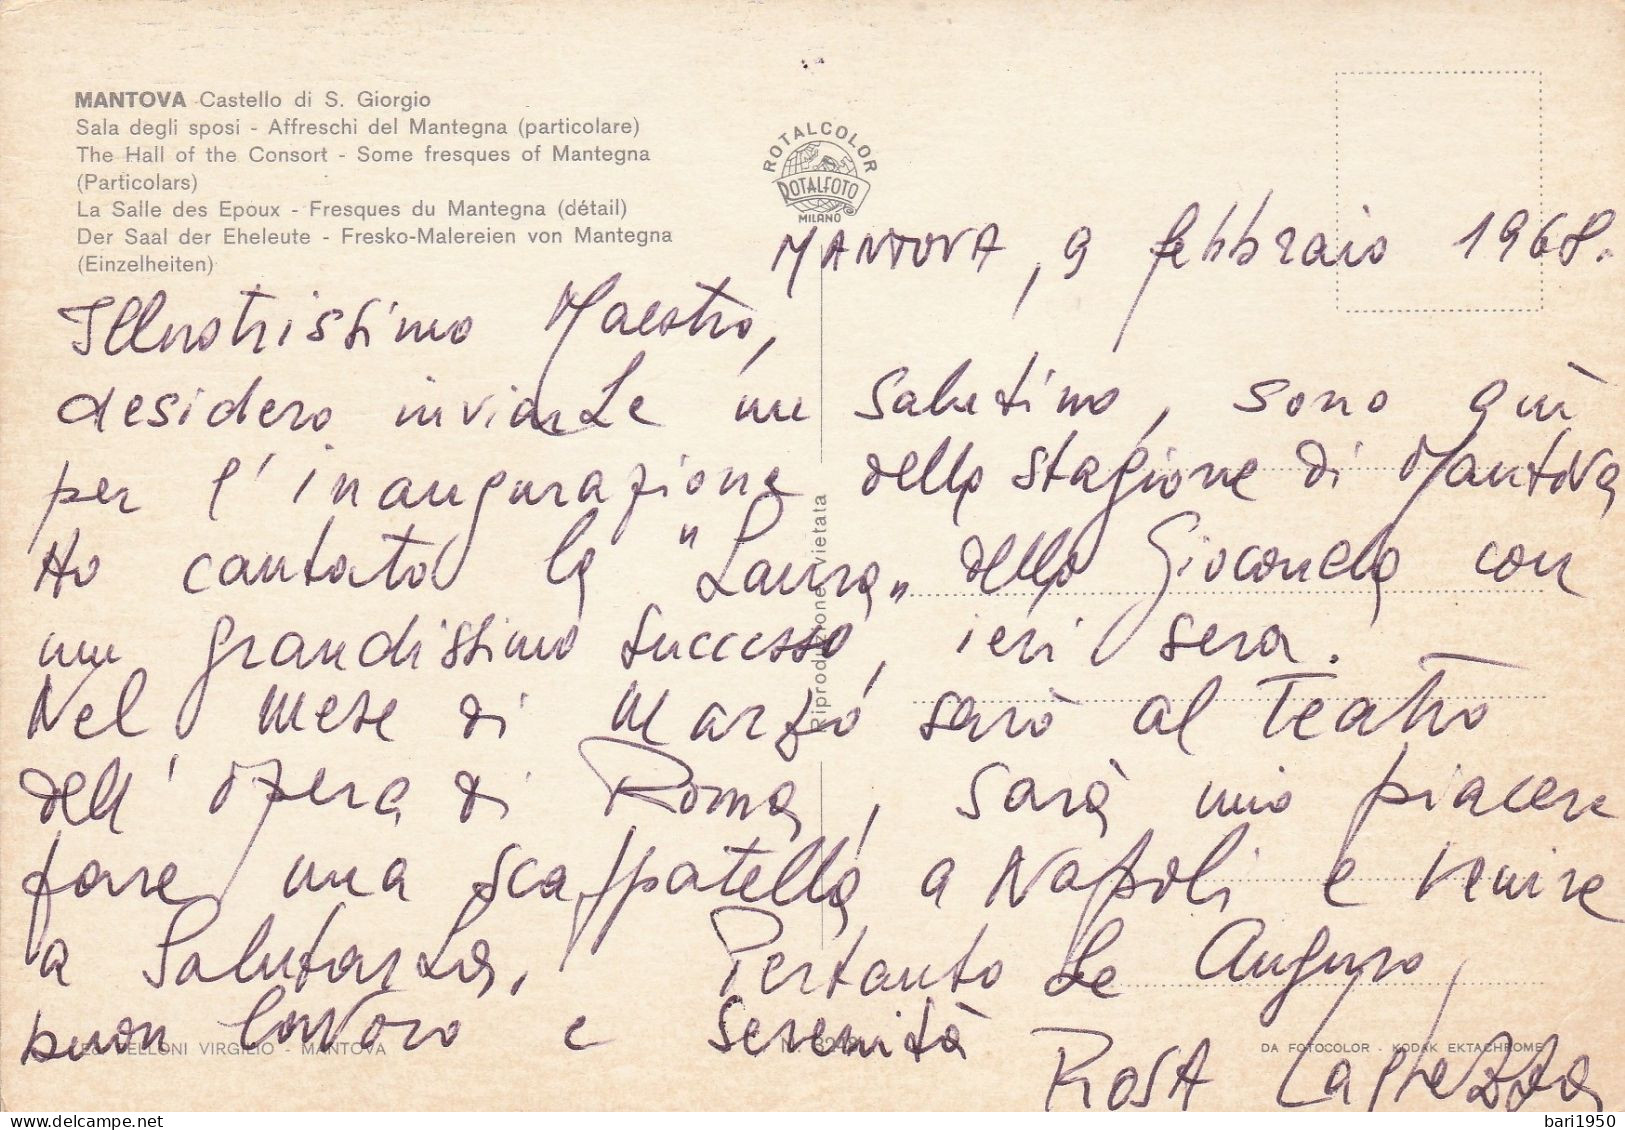 MANTOVA Castello di S. Giorgio
Sala degli sposi - Affreschi del Mantegna (particolare)
The Hall of the Consort - Some fresques of Mantegna
(Particolars)
La Salle des Epoux - Fresques du Mantegna (détail)
Der Saal der Eheleute - Fresko-Malereien von Mantegna
(Einzelheiten)
ROTALCOLOR
ROTALFOTO
MILANO
MANTOVA, 9 febbraio 1968.
Illustrissimo Maestro,
desidero inviarLe un salutino, sono quì
per l'inaugurazione della stagione di Mantova
Ho cantato la "Laura" della Gioconda con
un grandissimo successo, ieri sera.
Nel mese di marzo sarò al Teatro
dell'Opera di Roma, sarà mio piacere
fare una scappatella a Napoli e venire
a SalutarLa. Pertanto Le Auguro,
buon lavoro e serenità
Rosa Laghezza
Riproduzione vietata
Ed. BELLONI VIRGILIO - MANTOVA
DA FOTOCOLOR - KODAK EKTACHROME
bari1950